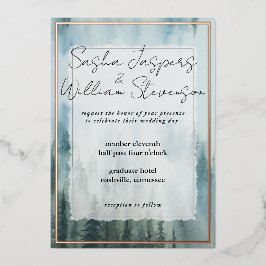 Sasha Jaspers
&
William Stevenson
request the honor of your presence
to celebrate their wedding day
october eleventh
half past four o'clock
graduate hotel
nashville, tennessee
reception to follow